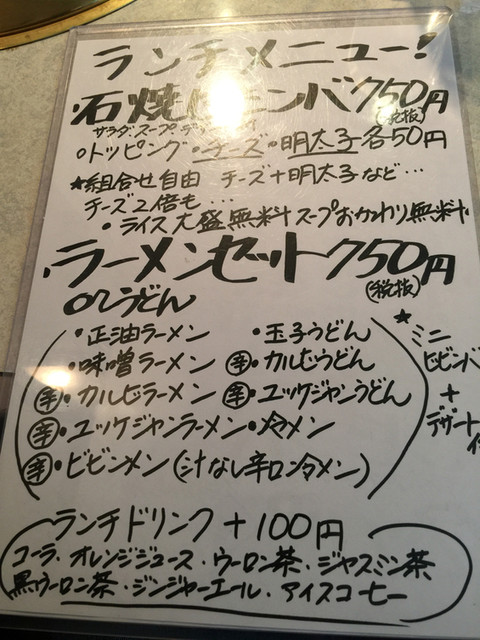 ランチメニュー!
石焼ビビンバ750円
(税抜)
サラダ・スープ・デザート付
○トッピング・チーズ・明太子各50円
★組合せ自由 チーズ+明太子など…
チーズ2倍も…
・ライス大盛無料スープおかわり無料
ラーメンセット750円
(税抜)
orうどん
・正油ラーメン ・玉子うどん
・味噌ラーメン 辛・カルビうどん
辛・カルビラーメン 辛・ユッケジャンうどん
辛・ユッケジャンラーメン・冷メン
辛・ビビンメン(汁なし辛口冷メン)
★ミニ
ビビンバ
+
デザート
付
ランチドリンク+100円
コーラ・オレンジジュース・ウーロン茶・ジャスミン茶
黒ウーロン茶・ジンジャーエール・アイスコーヒー